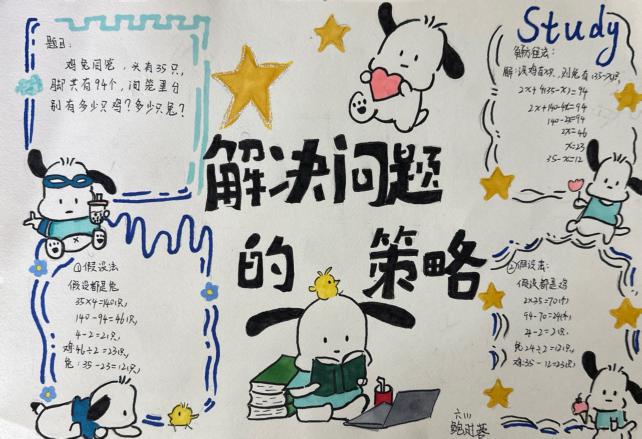 题目:
鸡兔同笼,头有35只,
脚共有94个,问笼里分
别有多少只鸡?多少只兔?
解决问题
的 策略
Study
解方程法:
2x+4(35-x)=94
2x+140-4x=94
140-2x=94
2x=46
x=23
35-x=12
①假设法
假设都是兔
35×4=140(只)
140-94=46(只)
4-2=2(只)
鸡46÷2=23(只)
兔:35-23=12(只)
②假设法:
假设都是鸡
2×35=70(只)
94-70=24(只)
4-2=2(只)
兔24÷2=12(只)
鸡:35-12=23(只)